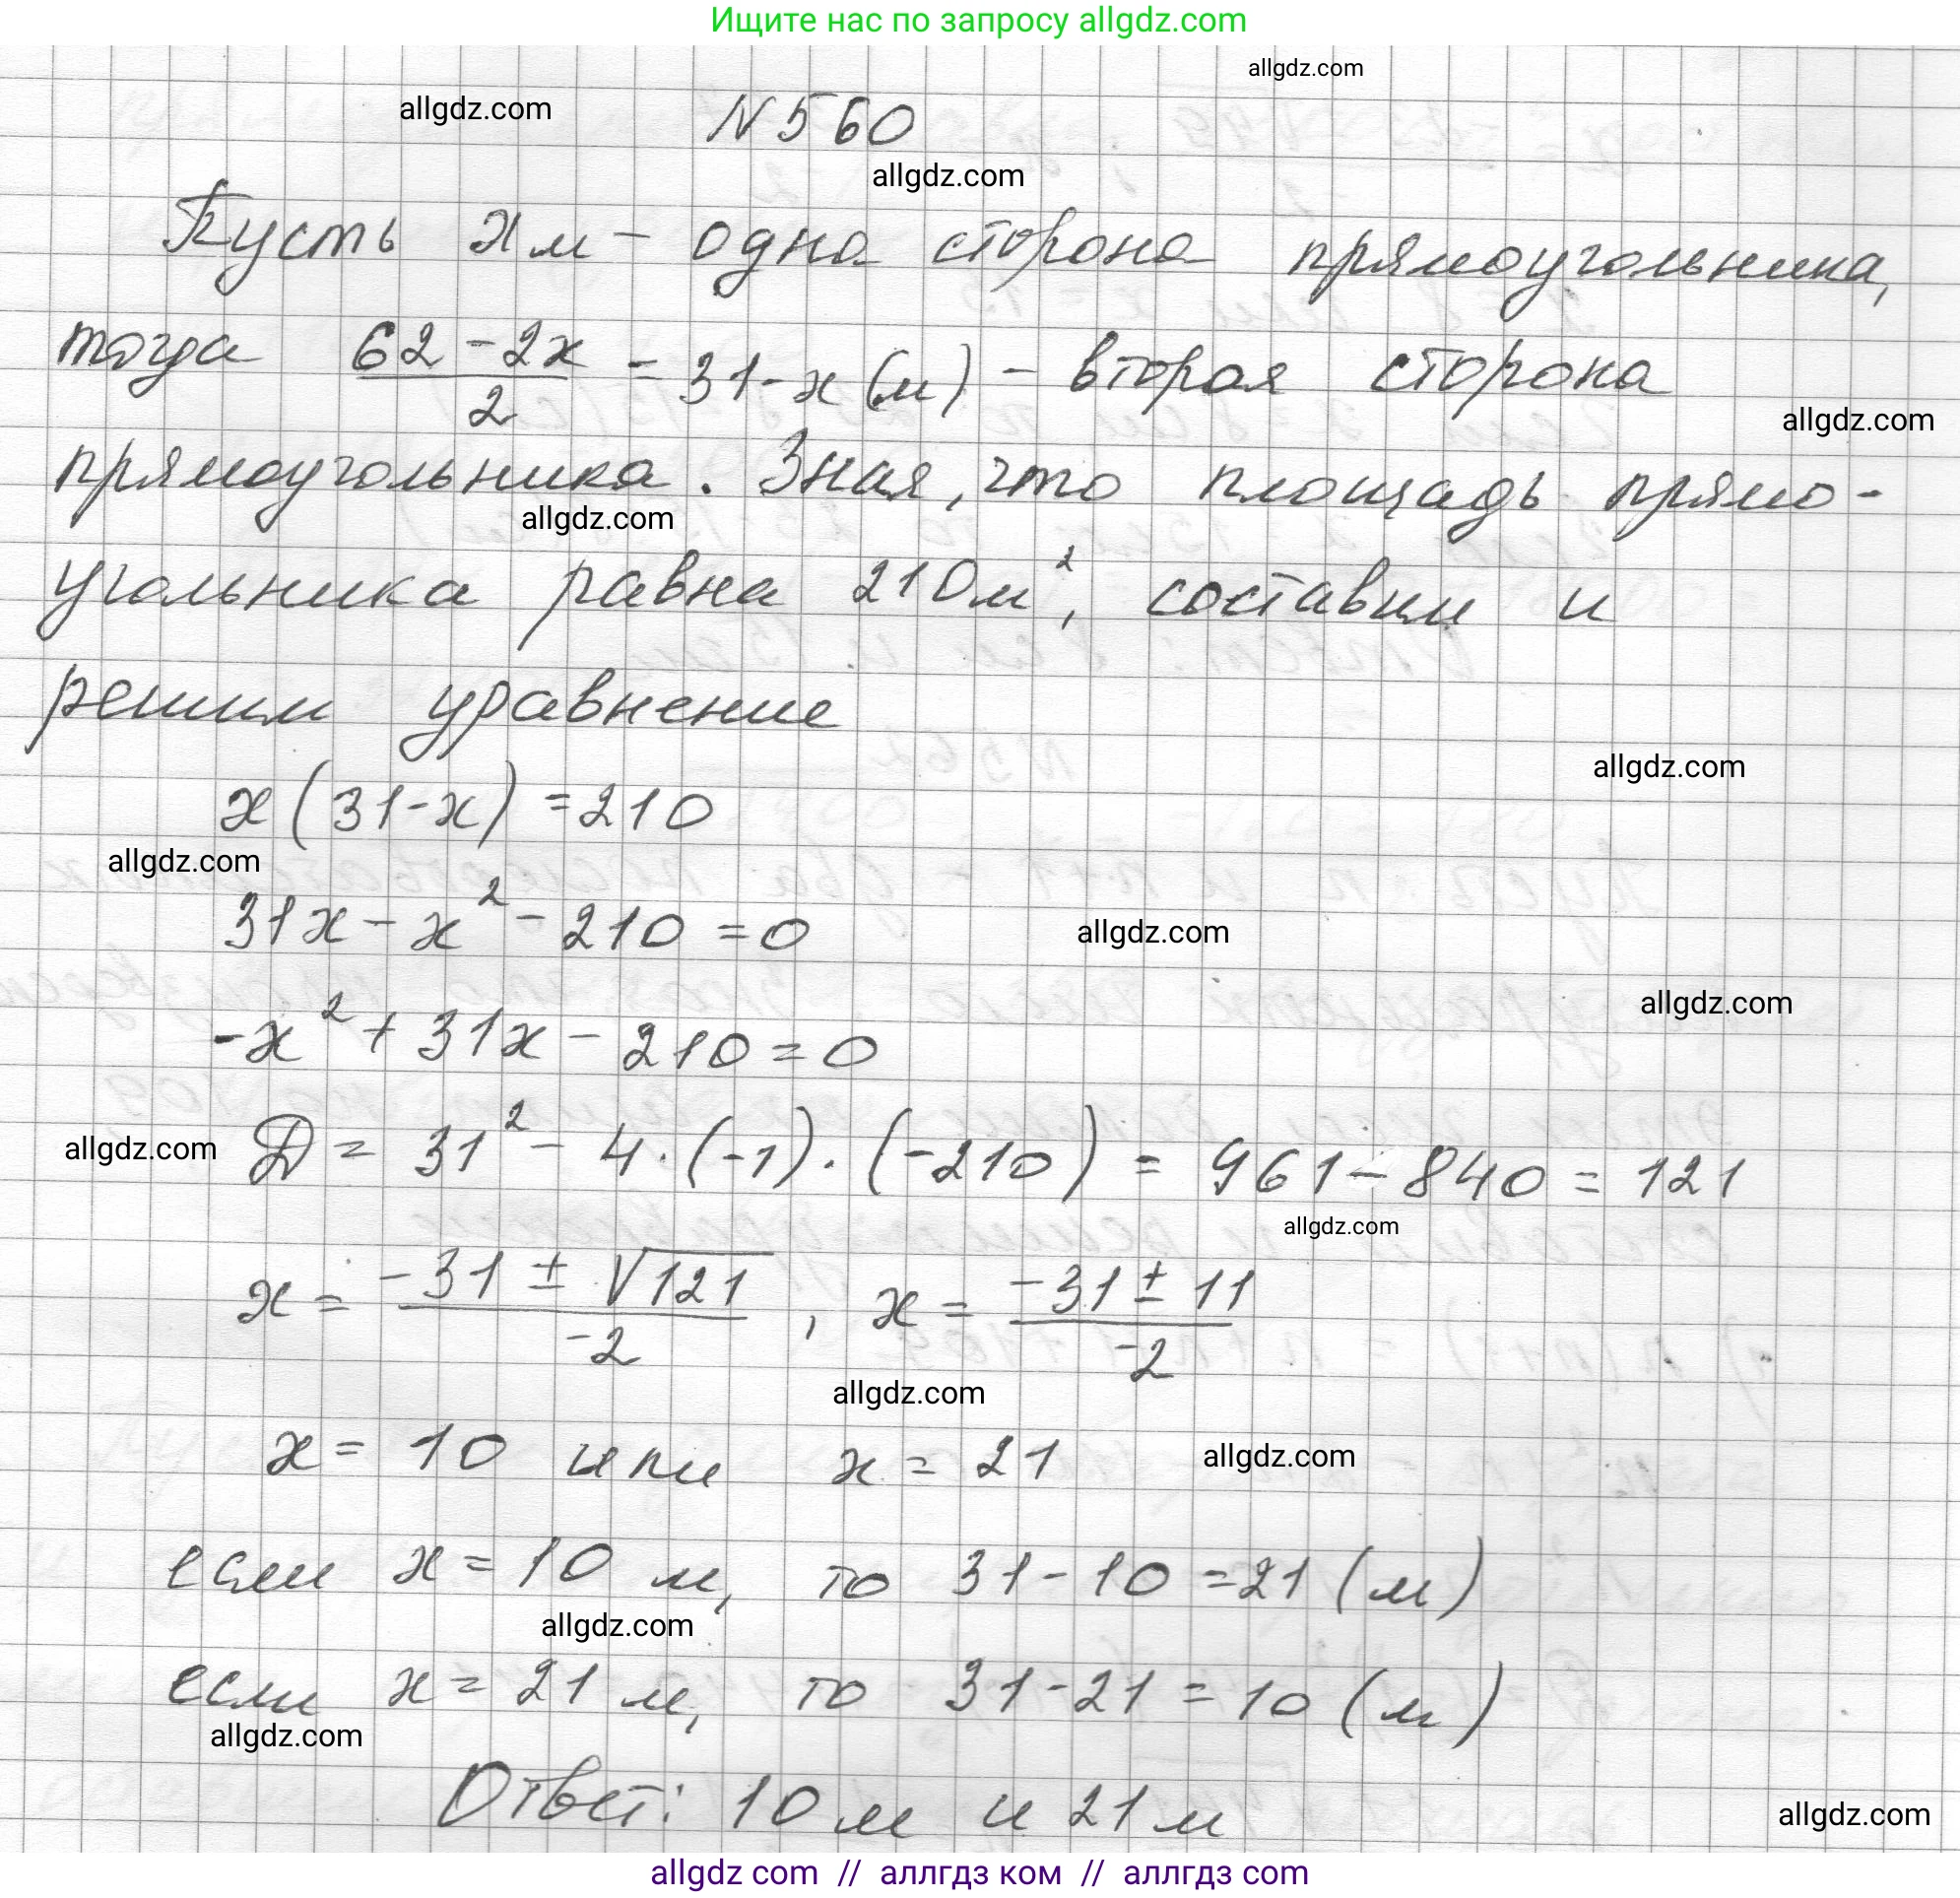 Ищите нас по запросу allgdz.com
allgdz.com
allgdz.com
N 560
allgdz.com
Пусть x м - одна сторона прямоугольника,
тогда (62 - 2x)/2 = 31 - x (м) - вторая сторона
allgdz.com
прямоугольника. Зная, что площадь прямо-
allgdz.com
угольника равна 210 м², составим и
решим уравнение
allgdz.com
x(31-x) = 210
allgdz.com
31x - x² - 210 = 0
allgdz.com
allgdz.com
-x² + 31x - 210 = 0
allgdz.com
D = 31² - 4·(-1)·(-210) = 961 - 840 = 121
allgdz.com
x = (-31 ± √121)/-2, x = (-31 ± 11)/-2
allgdz.com
x = 10 или x = 21
allgdz.com
если x = 10 м, то 31 - 10 = 21 (м)
allgdz.com
если x = 21 м, то 31 - 21 = 10 (м)
allgdz.com
Ответ: 10 м и 21 м
allgdz.com
allgdz com // аллгдз ком // аллгдз com